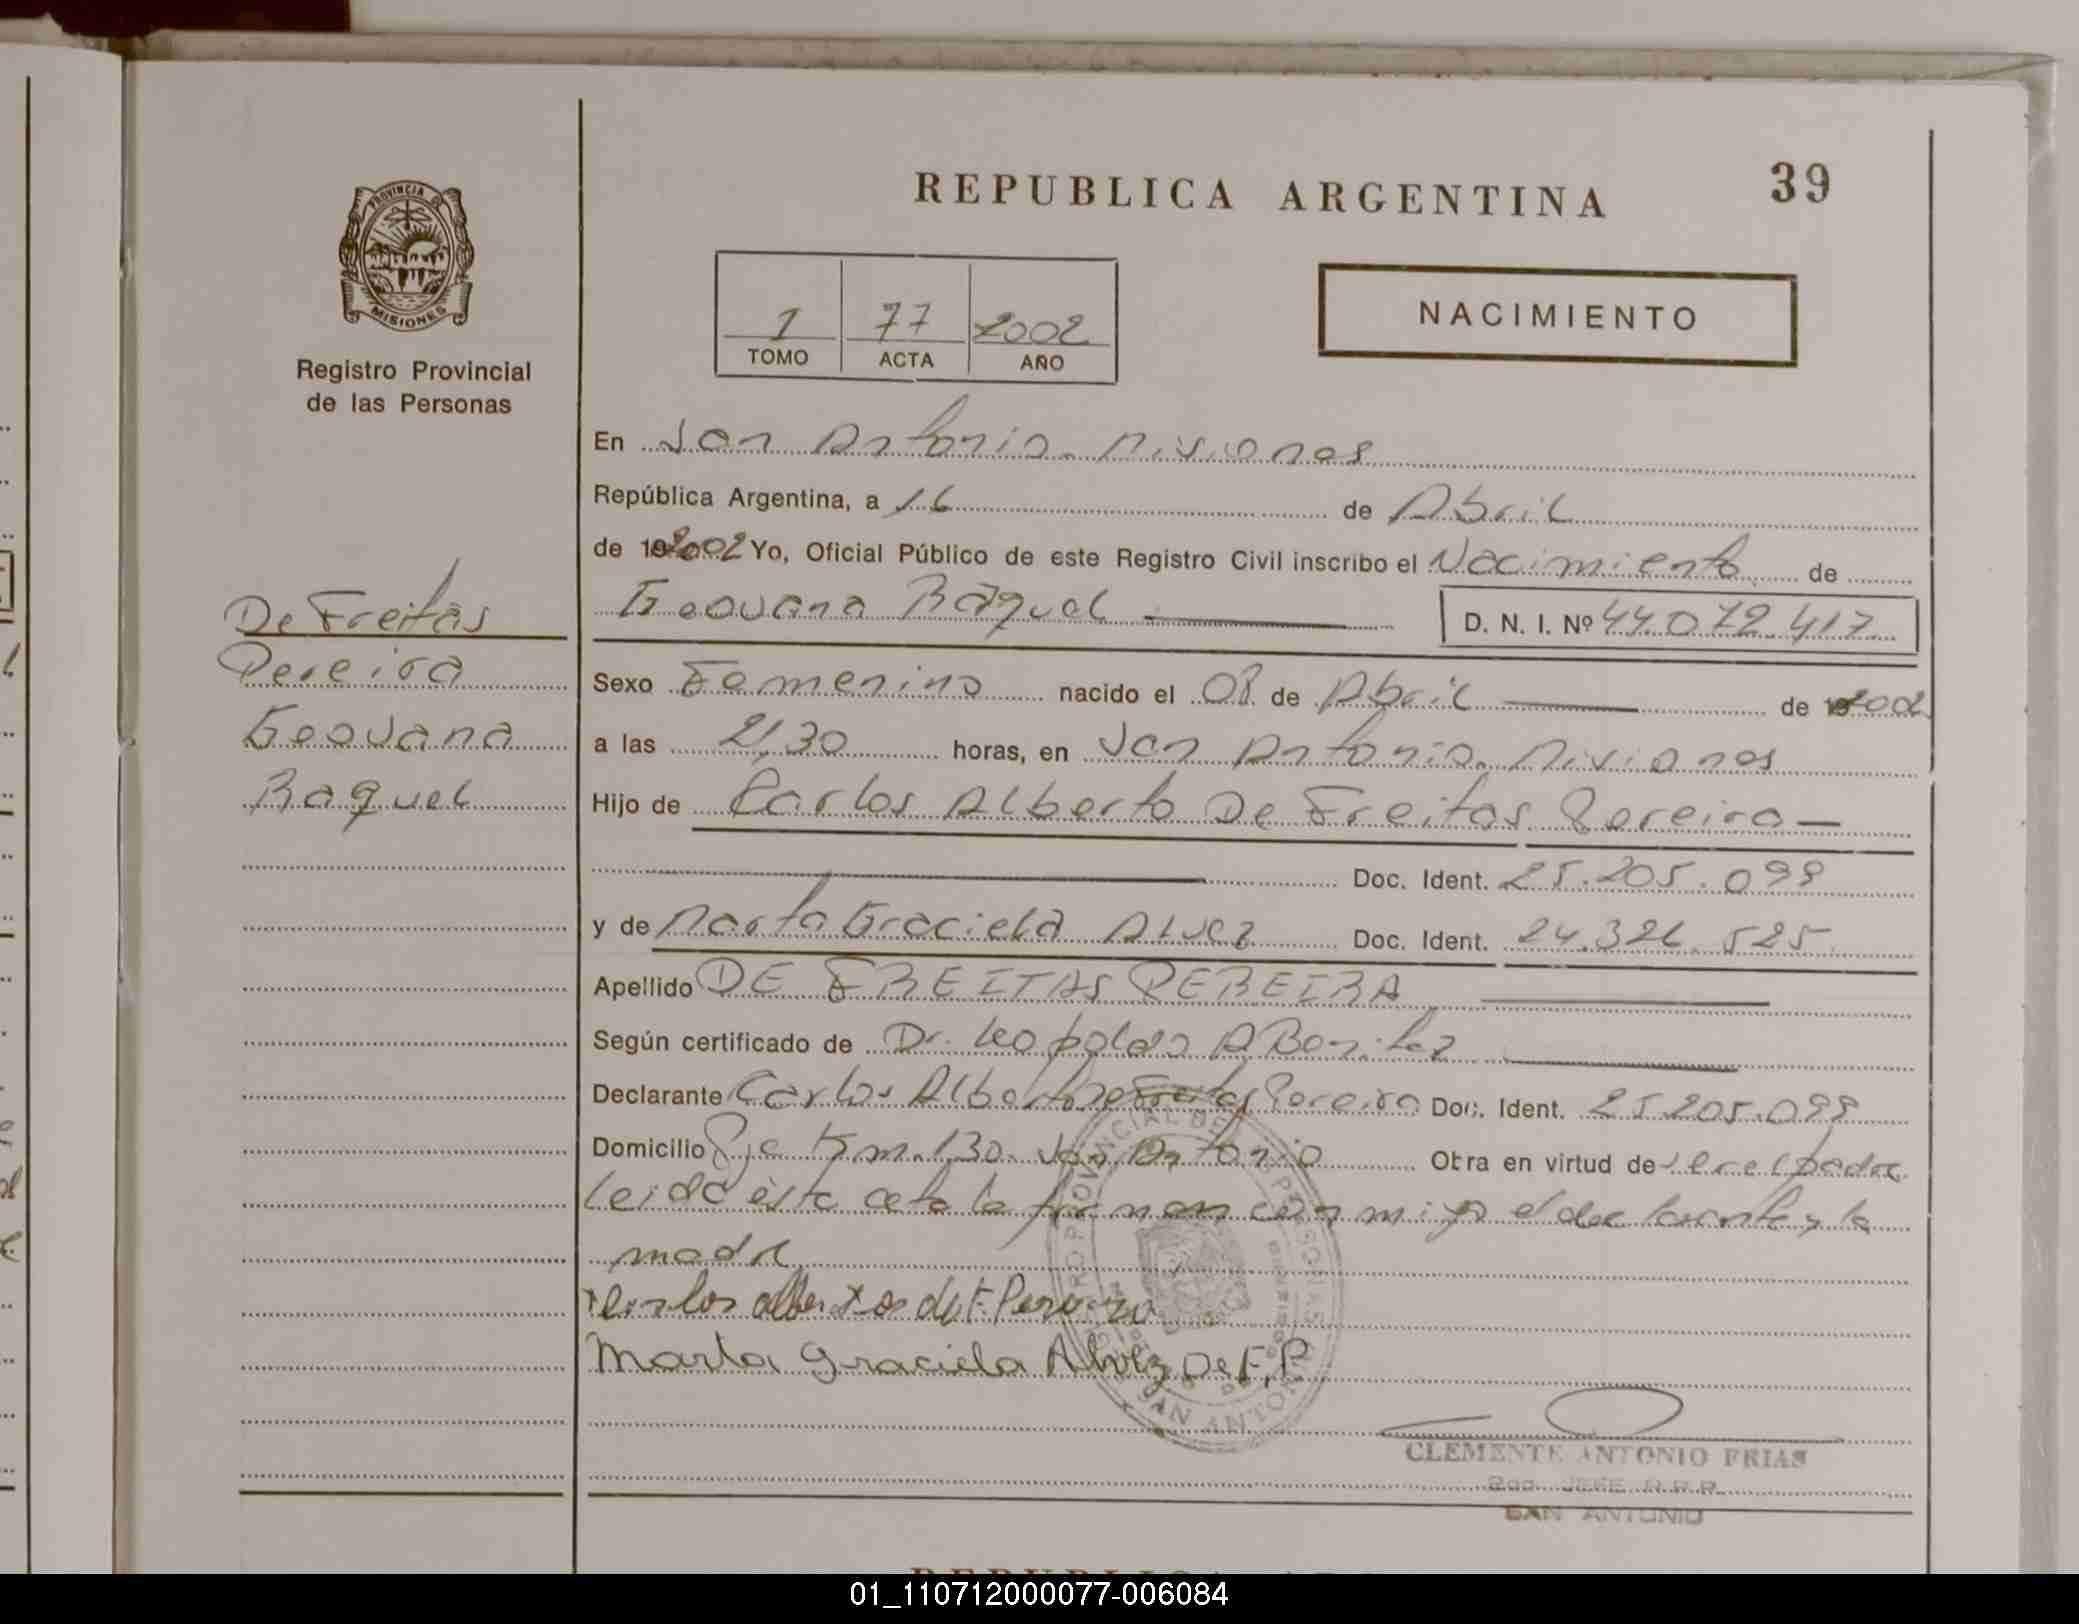 REPUBLICA ARGENTINA
39
PROVINCIA DE
MISIONES
Registro Provincial
de las Personas
1 77 2002
TOMO ACTA AÑO
NACIMIENTO
De Freitas
Pereira
Geovana
Raquel
En San Antonio. Misiones
República Argentina, a 16 de Abril
de 192002 Yo, Oficial Público de este Registro Civil inscribo el Nacimiento de
Geovana Raquel D. N. I. Nº 44.072.417
Sexo Femenino nacido el 08 de Abril de 2002
a las 21,30 horas, en San Antonio. Misiones
Hijo de Carlos Alberto De Freitas Pereira
Doc. Ident. 25.205.099
y de Marta Graciela Alvez Doc. Ident. 24.326.525
Apellido DE FREITAS PEREIRA
Según certificado de Dr. Leopoldo A Benitez
Declarante Carlos Alberto De Freitas Pereira Doc. Ident. 25.205.099
Domicilio Pje Km. 130. San Antonio Otra en virtud de ser el padre
Leida esta acta la firman conmigo el declarante y la
madre
Carlos alberto de F. Pereira
Marta Graciela Alvez De F. P.
CLEMENTE ANTONIO FRIAS
2do. JEFE R.P.P.
SAN ANTONIO
01_110712000077-006084